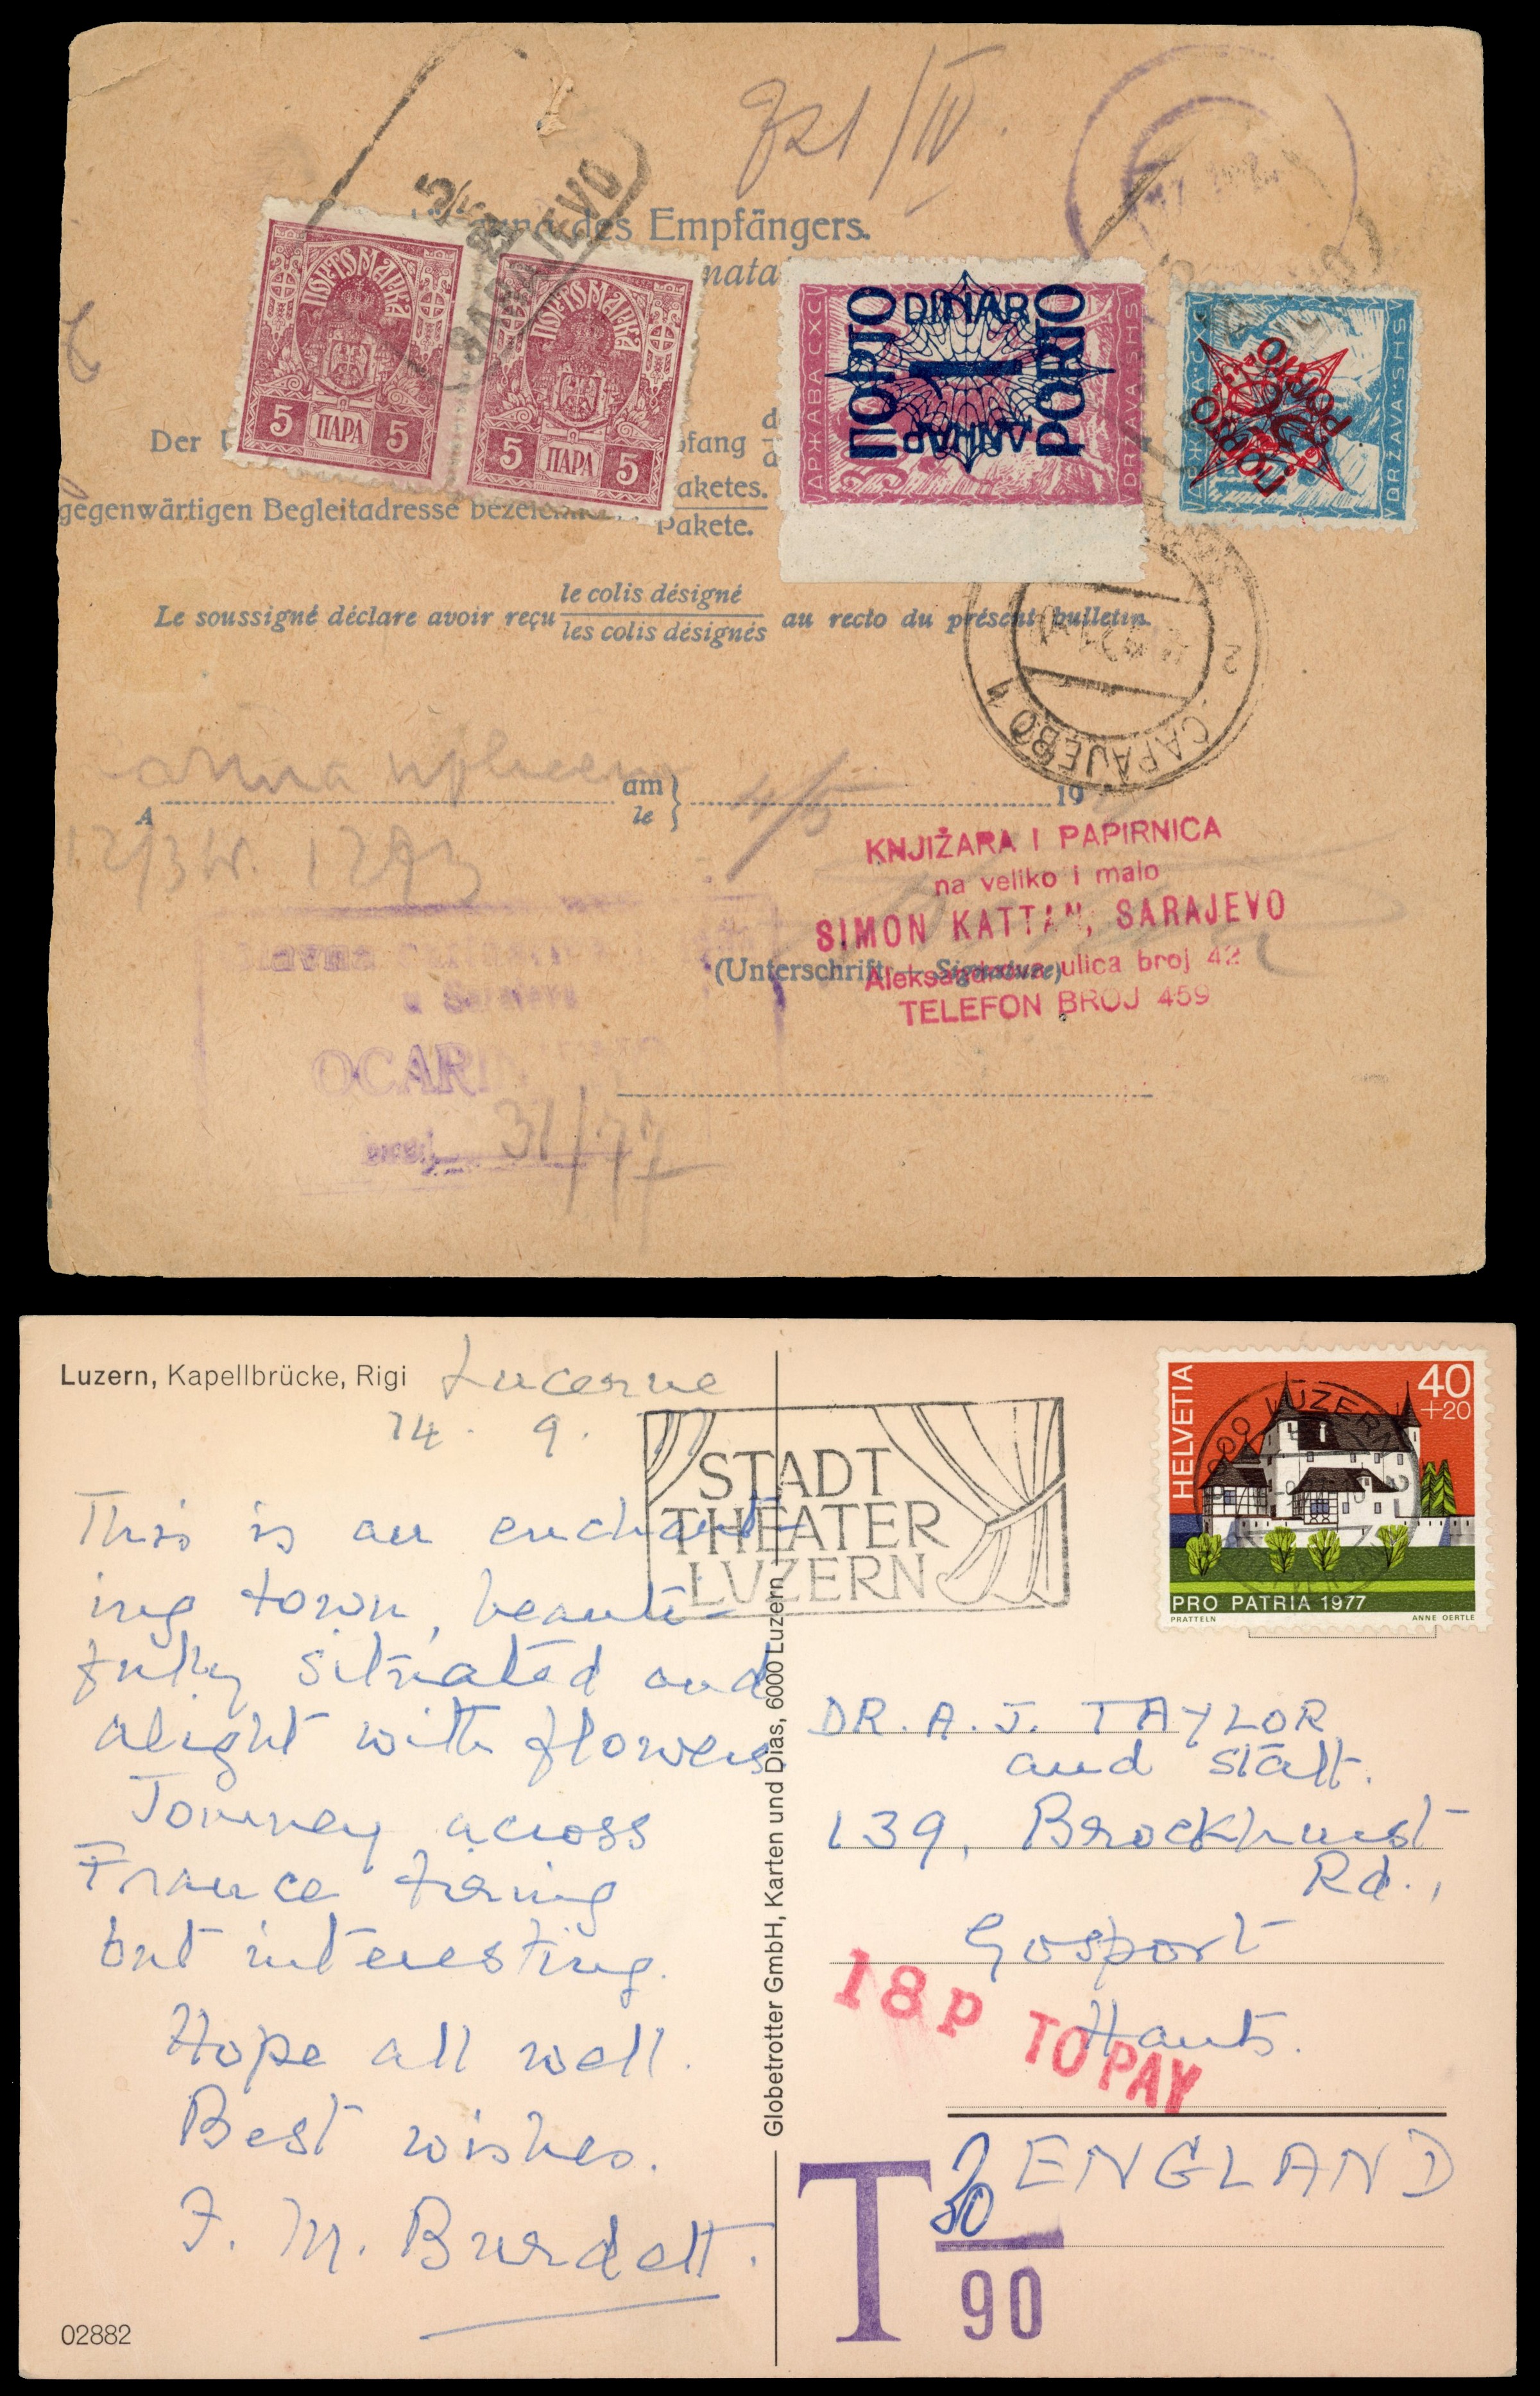 5/5 21
SARAJEVO
des Empfängers.
ПОРЕЗ. МАРКА
5 ПАРА 5
ПОРЕЗ. МАРКА
5 ПАРА 5
ПОРТО
DINAR
PORTO
1
ДИНАР
ДРЖАВА СХС
DRŽAVA SHS
ПОРТО
PORTO
ДРЖАВА СХС
DRŽAVA SHS
Der
gegenwärtigen Begleitadresse
aketes.
Pakete.
Le soussigné déclare avoir reçu le colis désigné
les colis désignés au recto du présent bulletin.
САРАЈЕВО 1
A am
le 4/5 19
KNJIŽARA I PAPIRNICA
na veliko i malo
SIMON KATTAN, SARAJEVO
(Unterschrift — Signature)
Aleksandrova ulica broj 42
TELEFON BROJ 459
u Sarajevu
OCAR
broj 31/77
Luzern, Kapellbrücke, Rigi
Lucerne
14. 9.
This is an enchant-
ing town, beauti-
fully situated and
alight with flowers.
Journey across
France tiring
but interesting.
Hope all well.
Best wishes.
F. M. Burdett.
02882
Globetrotter GmbH, Karten und Dias, 6000 Luzern
STADT
THEATER
LUZERN
HELVETIA
40
+20
6000 LUZERN 2
PRO PATRIA 1977
PRATTELN
ANNE OERTLE
DR. A. J. TAYLOR
and staff.
139, Brockhurst
Rd.,
Gosport
Hants.
ENGLAND
18p TO PAY
T
90